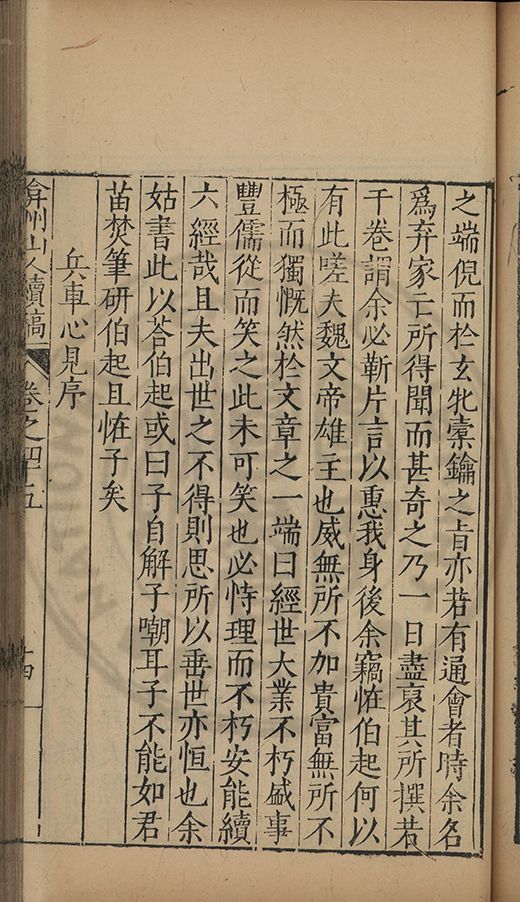 之端倪而於玄牝橐鑰之旨亦若有通會者時余名
爲弃家亡所得聞而甚奇之乃一日盡裒其所撰若
干卷謂余必靳片言以惠我身後余竊恠伯起何以
有此嗟夫魏文帝雄主也威無所不加貴富無所不
極而獨慨然於文章之一端曰經世大業不朽盛事
豐儒從而笑之此未可笑也必恃理而不朽安能續
六經哉且夫出世之不得則思所以垂世亦恒也余
姑書此以荅伯起或曰子自解子嘲耳子不能如君
苗焚筆研伯起且恠子矣
兵車心見序
弇州山人續稿 卷之四十五 十四